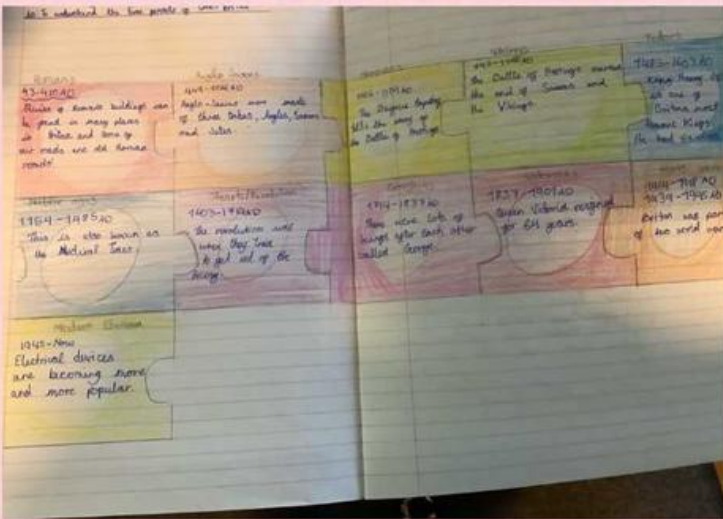 to understand the time periods of
Romans
43-410AD
Ruins of Romans buildings can
be found in many places
in Britain and some of
our roads are old Roman
roads!
Anglo Saxons
Anglo-Saxons were made
of three tribes, Angles, Saxons
and Jutes.
Normans
The Bayeux Tapestry
tells the story of
the Battle of Hastings
Vikings
the Battle of Hastings marked
the end of Saxons and
the Vikings.
Tudors
1485-1603AD
King Henry
is one of
Britains most
famous Kings.
He had
Middle Ages
1154-1485AD
This is also known as
the Medival Times.
Stuarts/Revolution
1603-1714AD
The revolution was
when they tried
to get rid of the
kings.
Georgians
1714-1837AD
There were lots of
kings after each other
called George.
Victorians
1837-1901AD
Queen Victoria reigned
for 64 years.
1939-1945AD
Britain was part
of two world wars
Modern Britain
1945-Now
Electrical devices
are becoming more
and more popular.